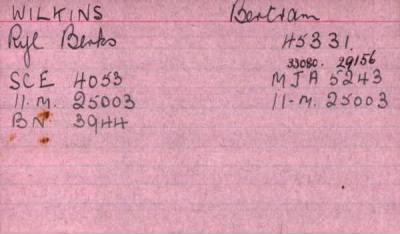 WILKINS Bertram
Ryl Berks 45331.
33080. 29156
SCE 4053 MJA 5243
11.M. 25003 11-M. 25003
BN 3944